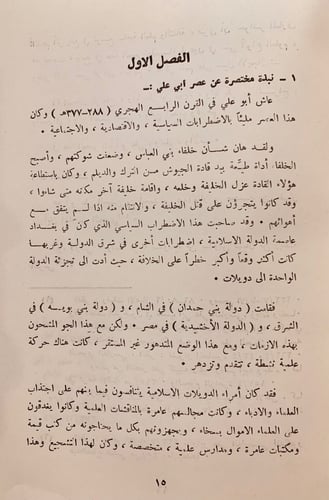 الفصل الاول
١ - نبذة مختصرة عن عصر ابي علي :ـ
عاش أبو علي في القرن الرابع الهجري ( ٢٨٨-٣٧٧هـ ) وكان
هذا العصر مليئاً بالاضطرابات السياسية ، والاقتصادية ، والاجتماعية ٠
ولقد هان شأن خلفاء بني العباس ، وضعفت شوكتهم ، وأصبح
الخلفاء أداة طيّعة بيد قادة الجيوش من الترك والديلم ، وكان باستطاعة
هؤلاء القادة عزل الخليفة وخلعه ، واقامة خليفة آخر مكانه متى شاءوا ،
وقد كانوا يتجرؤون على قتل الخليفة ، والانتقام منه اذا لم يتفق مع
أهوائهم ٠ وقد صاحبت هذا الاضطراب السياسي الذي كان في بغداد
عاصمة الدولة الاسلامية ، اضطرابات أخرى في شرق الدولة وغربها
كانت أكثر وقعاً وأكبر خطراً على الخلافة ، حيث أدت الى تجزئة الدولة
الواحدة الى دويلات ٠
فقامت ( دولة بني حمدان ) في الشام ، و ( دولة بني بويه ) في
الشرق ، و ( الدولة الأخشيدية ) في مصر ٠ ولكن مع هذا الجو المشحون
بهذه الازمات ، ومع هذا الوضع المتدهور غير المستقر ، كانت هناك حركة
علمية نشطة ، تتقدم وتزدهر ٠
فقد كان أمراء الدويلات الاسلامية يتنافسون فيما بينهم على اجتذاب
العلماء والادباء ، وكانت مجالسهم عامرة بالمناقشات العلمية وكانوا يغدقون
على العلماء الاموال بسخاء ، ويجهزونهم بكل ما يحتاجونه من كتب قيمة
ومكتبات عامرة ، ومدارس علمية ، متخصصة ، وكان لهذا التشجيع وهذا
١٥